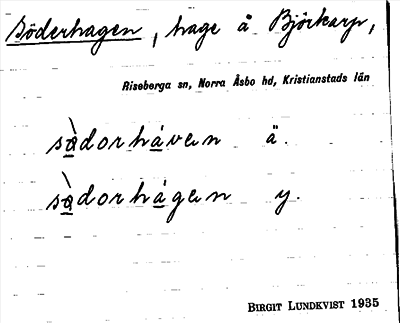 Söderhagen, hage å Björkarp,
Riseberga sn, Norra Åsbo hd, Kristianstads län
sàdorháven ä.
sàdorhágen y.
BIRGIT LUNDKVIST 1935